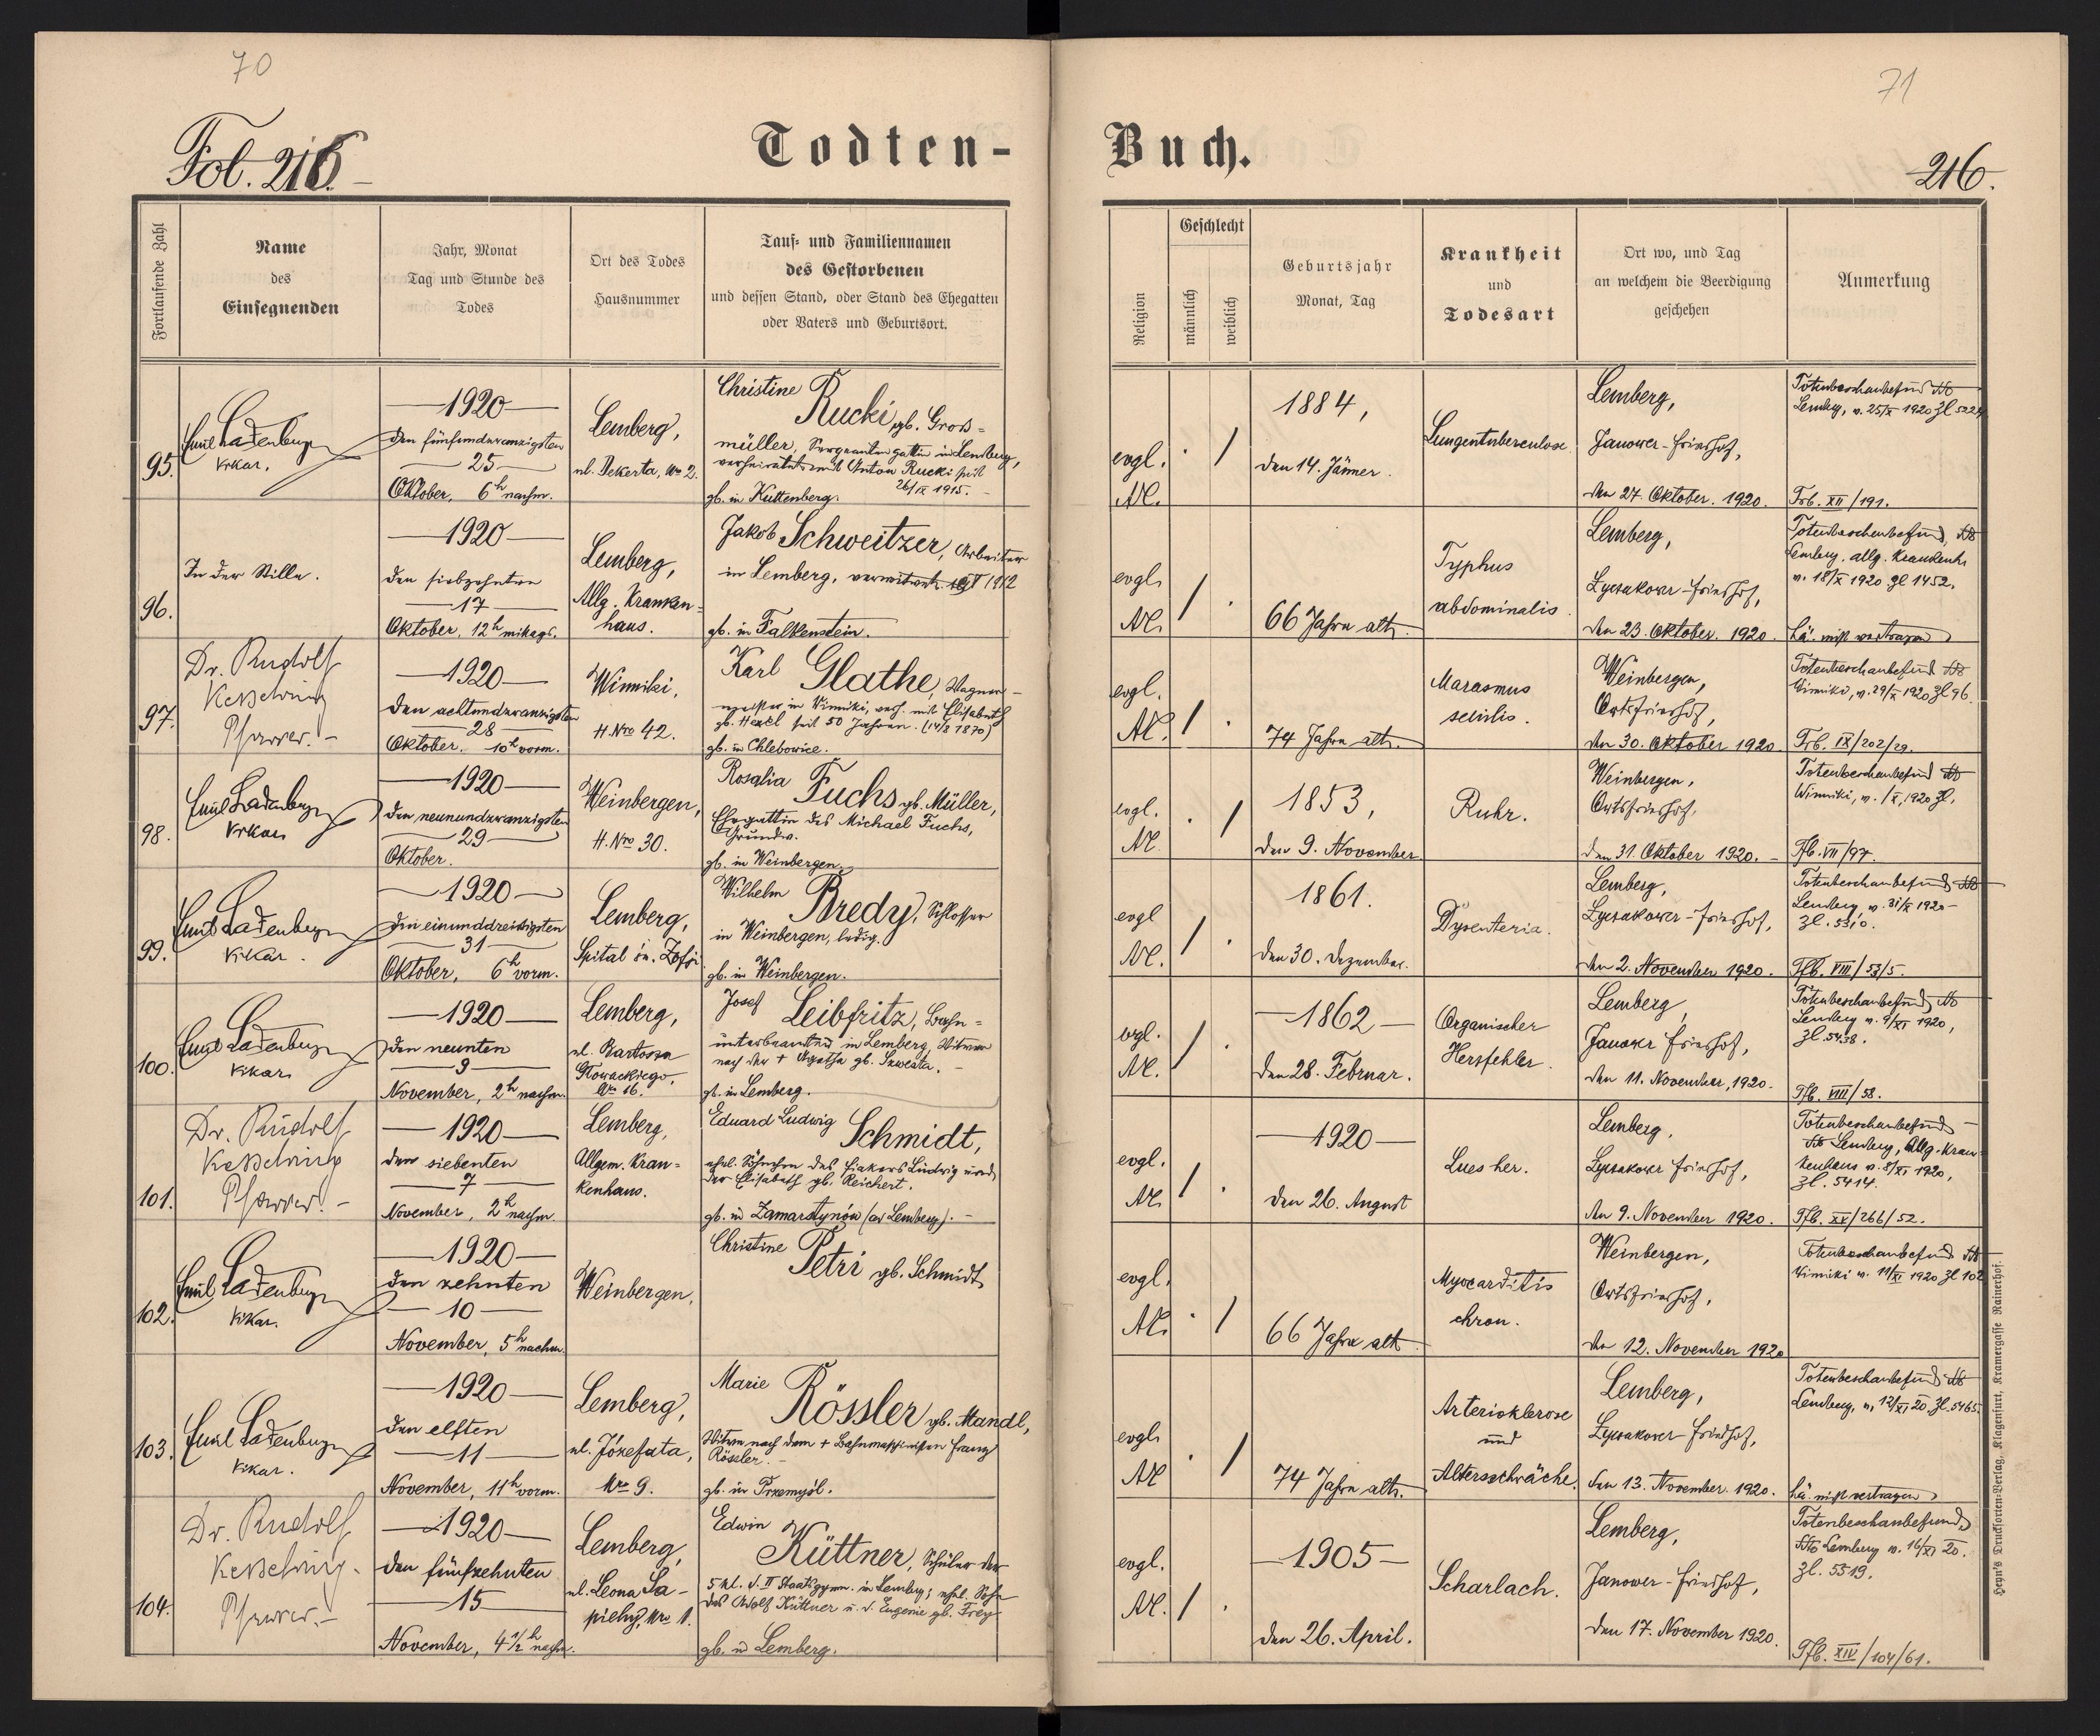 70
71
Fol. 216.
Todten-
Buch.
216.
Fortlaufende Zahl
Name
des
Einsegnenden
Jahr, Monat
Tag und Stunde des
Todes
Ort des Todes
Hausnummer
Tauf= und Familiennamen
des Gestorbenen
und dessen Stand, oder Stand des Ehegatten
oder Vaters und Geburtsort.
Religion
Geschlecht
männlich
weiblich
Geburtsjahr
Monat, Tag
Krankheit
und
Todesart
Ort wo, und Tag
an welchem die Beerdigung
geschehen
Anmerkung
95.
Emil Ladenberger
Vikar.
1920
den fünfundzwanzigsten
25
Oktober, 6h nachm.
Lemberg,
ul. Dekerta, Nro 2.
Christine
Rucki gb. Gros=
müller, Sergeantensgattin in Lemberg,
verheiratet mit Anton Rucki seit
26/IX 1915.
gb. in Kuttenberg.
evgl.
AC.
1884,
den 14. Jänner.
Lungentuberculose
Lemberg,
Janower-Friedhof,
den 27. Oktober. 1920.
Totenbeschaubefund
Lemberg, v. 25/X 1920 Zl 5224
Trb. XII/191.
96.
In der Stille.
1920
den siebzehnten
17
Oktober, 12h mittags.
Lemberg,
Allg. Kranken=
haus.
Jakob Schweitzer, Arbeiter
in Lemberg, verwitwet seit 1912
gb. in Falkenstein.
evgl.
AC.
66 Jahre alt.
Typhus
abdominalis.
Lemberg,
Lyczakower-Friedhof,
den 23. Oktober. 1920.
Totenbeschaubefund,
Lemberg, allg. Krankenh.
v. 18/X 1920 Zl 1452.
hä. nicht vertragen
97.
Dr. Rudolf
Kesselring
Pfarrer.-
1920
den achtundzwanzigsten
28
Oktober. 10h vorm.
Winniki,
H. Nro 42.
Karl Glathe, Wagner-
meister in Winniki, verh. mit Elisabeth
gb. Hexel seit 50 Jahren. (14/8 1870)
gb. in Chlebowice.
evgl.
AC.
74 Jahre alt.
Marasmus
senilis.
Weinbergen,
Ortsfriedhof,
den 30. Oktober 1920.
Totenbeschaubefund
Winniki, v. 29/X 1920 Zl 96.
Trb. IX/202/29.
98.
Emil Ladenberger
Vikar
1920
den neunundzwanzigsten
29
Oktober.
Weinbergen,
H. Nro 30.
Rosalia Fuchs gb. Müller,
Ehegattin des Michael Fuchs,
Grundw.
gb. in Weinbergen.
evgl.
AC.
1853,
den 9. November
Ruhr.
Weinbergen,
Ortsfriedhof,
den 31. Oktober 1920.
Totenbeschaubefund
Winniki, v. 1920 Zl.
Tfb. VII/97.
99.
Emil Ladenberger
Vikar.
1920
den einunddreissigsten
31
Oktober, 6h vorm.
Lemberg,
Spital św. Zofji
Wilhelm Bredy, Schlosser
in Weinbergen, ledig.
gb. in Weinbergen.
evgl
AC.
1861.
den 30. Dezember.
Dysenteria.
Lemberg,
Lyczakower-Friedhof,
den 2. November 1920.
Totenbeschaubefund
Lemberg v. 31/X 1920
Zl. 5310.
Tfb. VIII/53/5.
100.
Emil Ladenberger
Vikar.
1920
den neunten
9
November, 2h nachm.
Lemberg,
ul. Bartosza
Głowackiego,
Nro 16.
Josef Leibfritz, Bahn=
unterbeamter in Lemberg, Witwer
nach der + Agatha gb. Szwesta.
gb. in Lemberg.
evgl.
AC.
1862
den 28. Februar.
Organischer
Herzfehler.
Lemberg,
Janower Friedhof,
den 11. November, 1920.
Totenbeschaubefund
Lemberg v. 9/XI 1920,
Zl. 5438.
Tfb. VIII/58.
101.
Dr. Rudolf
Kesselring
Pfarrer.-
1920
den siebenten
7
November, 2h nachm.
Lemberg,
Allgem. Kran=
kenhaus.
Eduard Ludwig Schmidt,
ehel. Söhnchen des Fiakers Ludwig und
der Elisabeth gb. Reichert.
gb. in Zamarstynów (ad Lemberg).
evgl.
AC.
1920
den 26. August
Lues her.
Lemberg,
Lyczakower Friedhof,
den 9. November 1920.
Totenbeschaubefund
Lemberg, Allg. Kran-
kenhaus v. 8/XI 1920,
Zl. 5414.
Tfb. XX/266/52.
102.
Emil Ladenberger
Vikar.
1920
den zehnten
10
November, 5h nachm.
Weinbergen,
Christine Petri gb. Schmidt
evgl.
AC.
66 Jahre alt.
Myocarditis
chron.
Weinbergen,
Ortsfriedhof,
den 12. November 1920
Totenbeschaubefund
Winniki v. 11/XI 1920 Zl 102
103.
Emil Ladenberger
Vikar.
1920
den elften
11
November, 11h vorm.
Lemberg,
ul. Józefata,
Nro 9.
Marie Rössler gb. Mandl,
Witwe nach dem + Bahnmaschinisten Franz
Rössler.-
gb. in Przemyśl.
evgl.
AC
74 Jahre alt.
Arterioklerose
und
Altersschwäche.
Lemberg,
Lyczakower-Friedhof,
den 13. November. 1920.
Totenbeschaubefund
Lemberg, v. 12/XI 20. Zl. 5465
hä. nicht vertragen
104.
Dr. Rudolf
Kesselring.
Pfarrer.-
1920
den fünfzehnten
15
November, 4 1/2h nachm.
Lemberg,
ul. Leona Sa-
piehy, Nro 1.
Edwin Küttner, Schüler der
5 Kl. d. II Staatsgymn. in Lemberg; ehel. Sohn
des Adolf Küttner u. d. Eugenie gb. Frey
gb. in Lemberg.
evgl.
AC.
1905
den 26. April.
Scharlach.
Lemberg,
Janower-Friedhof,
den 17. November 1920.
Totenbeschaubefund
Lemberg v. 16/XI 20.
Zl. 5519.
Tfb. XIV/104/61.
Heyn's Drucksorten=Verlag, Klagenfurt, Kramergasse Rainerhof.